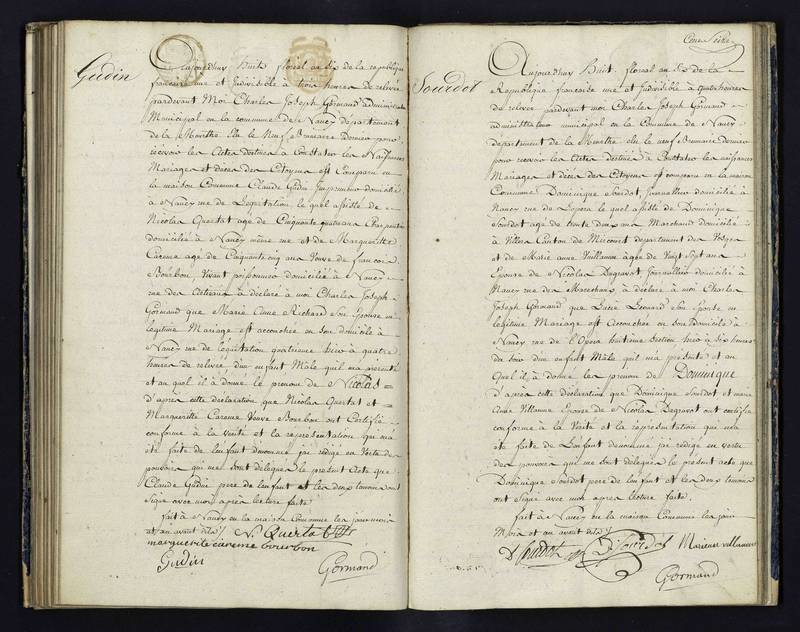 Gudin
Aujourdhuy Huit floreal an Six de la republique
francaise une et Indivisible à trois heures de relevée
pardevant Moi Charles Joseph Gormand administrateur
Municipal en la commune de Nancy departement
de la Meurthe Elu le Neuf Brumaire Dernier pour
recevoir les Actes Destinés a Constater les Naissances
Mariages et deces des Citoyens est Comparu en
la maison Commune Claude Gudin Imprimeur domicilié
à Nancy rue de le quel assisté de
Nicolas Quertat age de Cinquante ans Charpentier
domicilié à Nancy même rue et de Marguerite
Careme agé de Cinquante cinq ans Veuve de francois
Bourbon, Vivant poissonnier domiciliée à Nancy
rue des Artisans à déclaré à moi Charles Joseph
Gormand que Marie Anne Richard Son Epouse en
legitime Mariage est accouchée en Son domicile à
Nancy rue de quatrieme hier à quatre
heures de relevée d'un enfant Mâle quil ma presenté
et au quel il à donné le prenom de Nicolas =
D'après cette déclaration que Nicolas Quertat et
Marguerite Careme Veuve Bourbon ont Certifié
conforme à la verité et la representation qui ma
été faite de l'enfant denommé jai rédigé en Vertu des
pouvoirs qui me sont délégués le présent Acte que
Claude Gudin pere de l'enfant et les deux temoins ont
Signé avec moi après lecture faite
fait à Nancy en la maison Commune les jour mois
et an avant dits N. Quertat
marguerite careme bourbon
Gudin
Gormand
Cent Seize
Sourdot
Aujourdhuy Huit floreal an Six de la
Republique francaise une et Indivisible à quatre heures
de relevée pardevant moi Charles Joseph Gormand
administrateur municipal en la Commune de Nancy
departement de la Meurthe elu le neuf Brumaire dernier
pour recevoir les Actes Destinés à Constater les naissances
Mariages et décès des Citoyens est comparu en la maison
Commune Dominique Sourdot, Journallier domicilié à
Nancy rue de Lopera le quel assisté de Dominique
Sourdot agé de trente deux ans Marchand domicilié
à Villers Canton de Mircourt departement des Vosges
et de Marie anne Vuillaume agée de Vingt Sept ans
Epouse de Nicolas Dagravat Journallier domicilié à
Nancy rue des Marechaux à déclaré à moi Charles
Joseph Gormand que Lucie Leonard Son Epouse en
legitime Mariage est Accouchée en Son Domicile à
Nancy rue de l'Opera huitieme Section hier à Six heures
du soir d'un enfant Mâle quil m'a présenté et au
Quel il à donné les prenom de Dominique
D'après cette déclaration que Dominique Sourdot et marie
Anne Villaume Epouse de Nicolas Degravat ont certifié
conforme à la Verité et la représentation qui ma
été faite de L'enfant denommé jai rédigé en vertu
des pouvoirs qui me sont délégués le présent acte que
Dominique Sourdot pere de l'enfant et les deux temoins
ont Signé avec moi après lecture faite.
fait à Nancy en la maison Commune les jour
Mois et an avant dits
D Sourdot D Sourdot Marianne villaume
Gormand